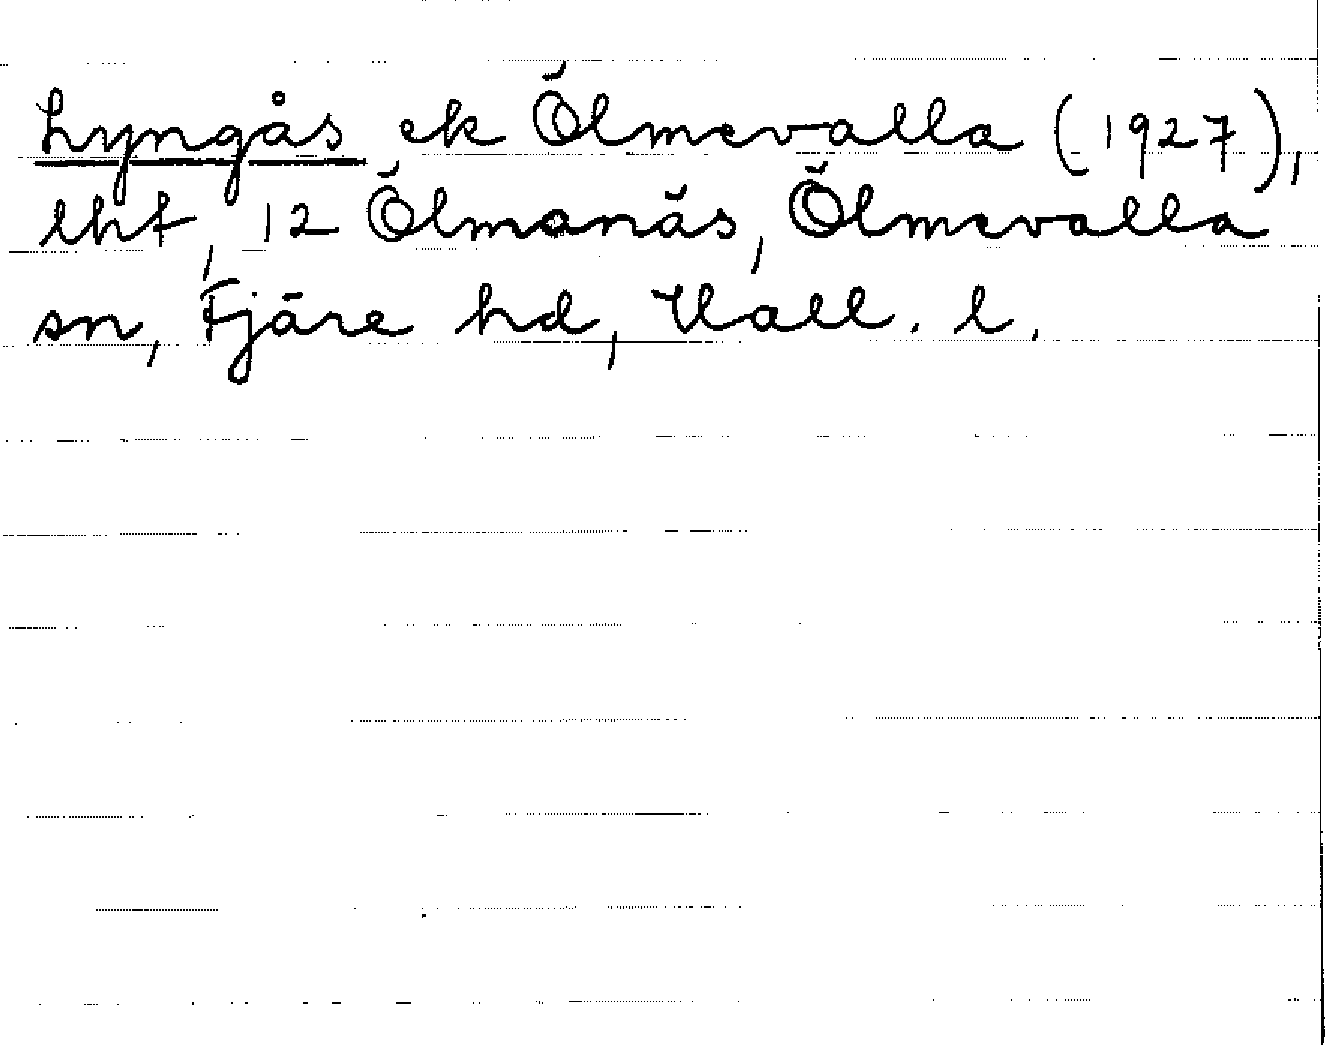 Lyngås ek Ölmevalla (1927),
lht, 12 Ölmanäs, Ölmevalla
sn, Fjäre hd, Hall. l.